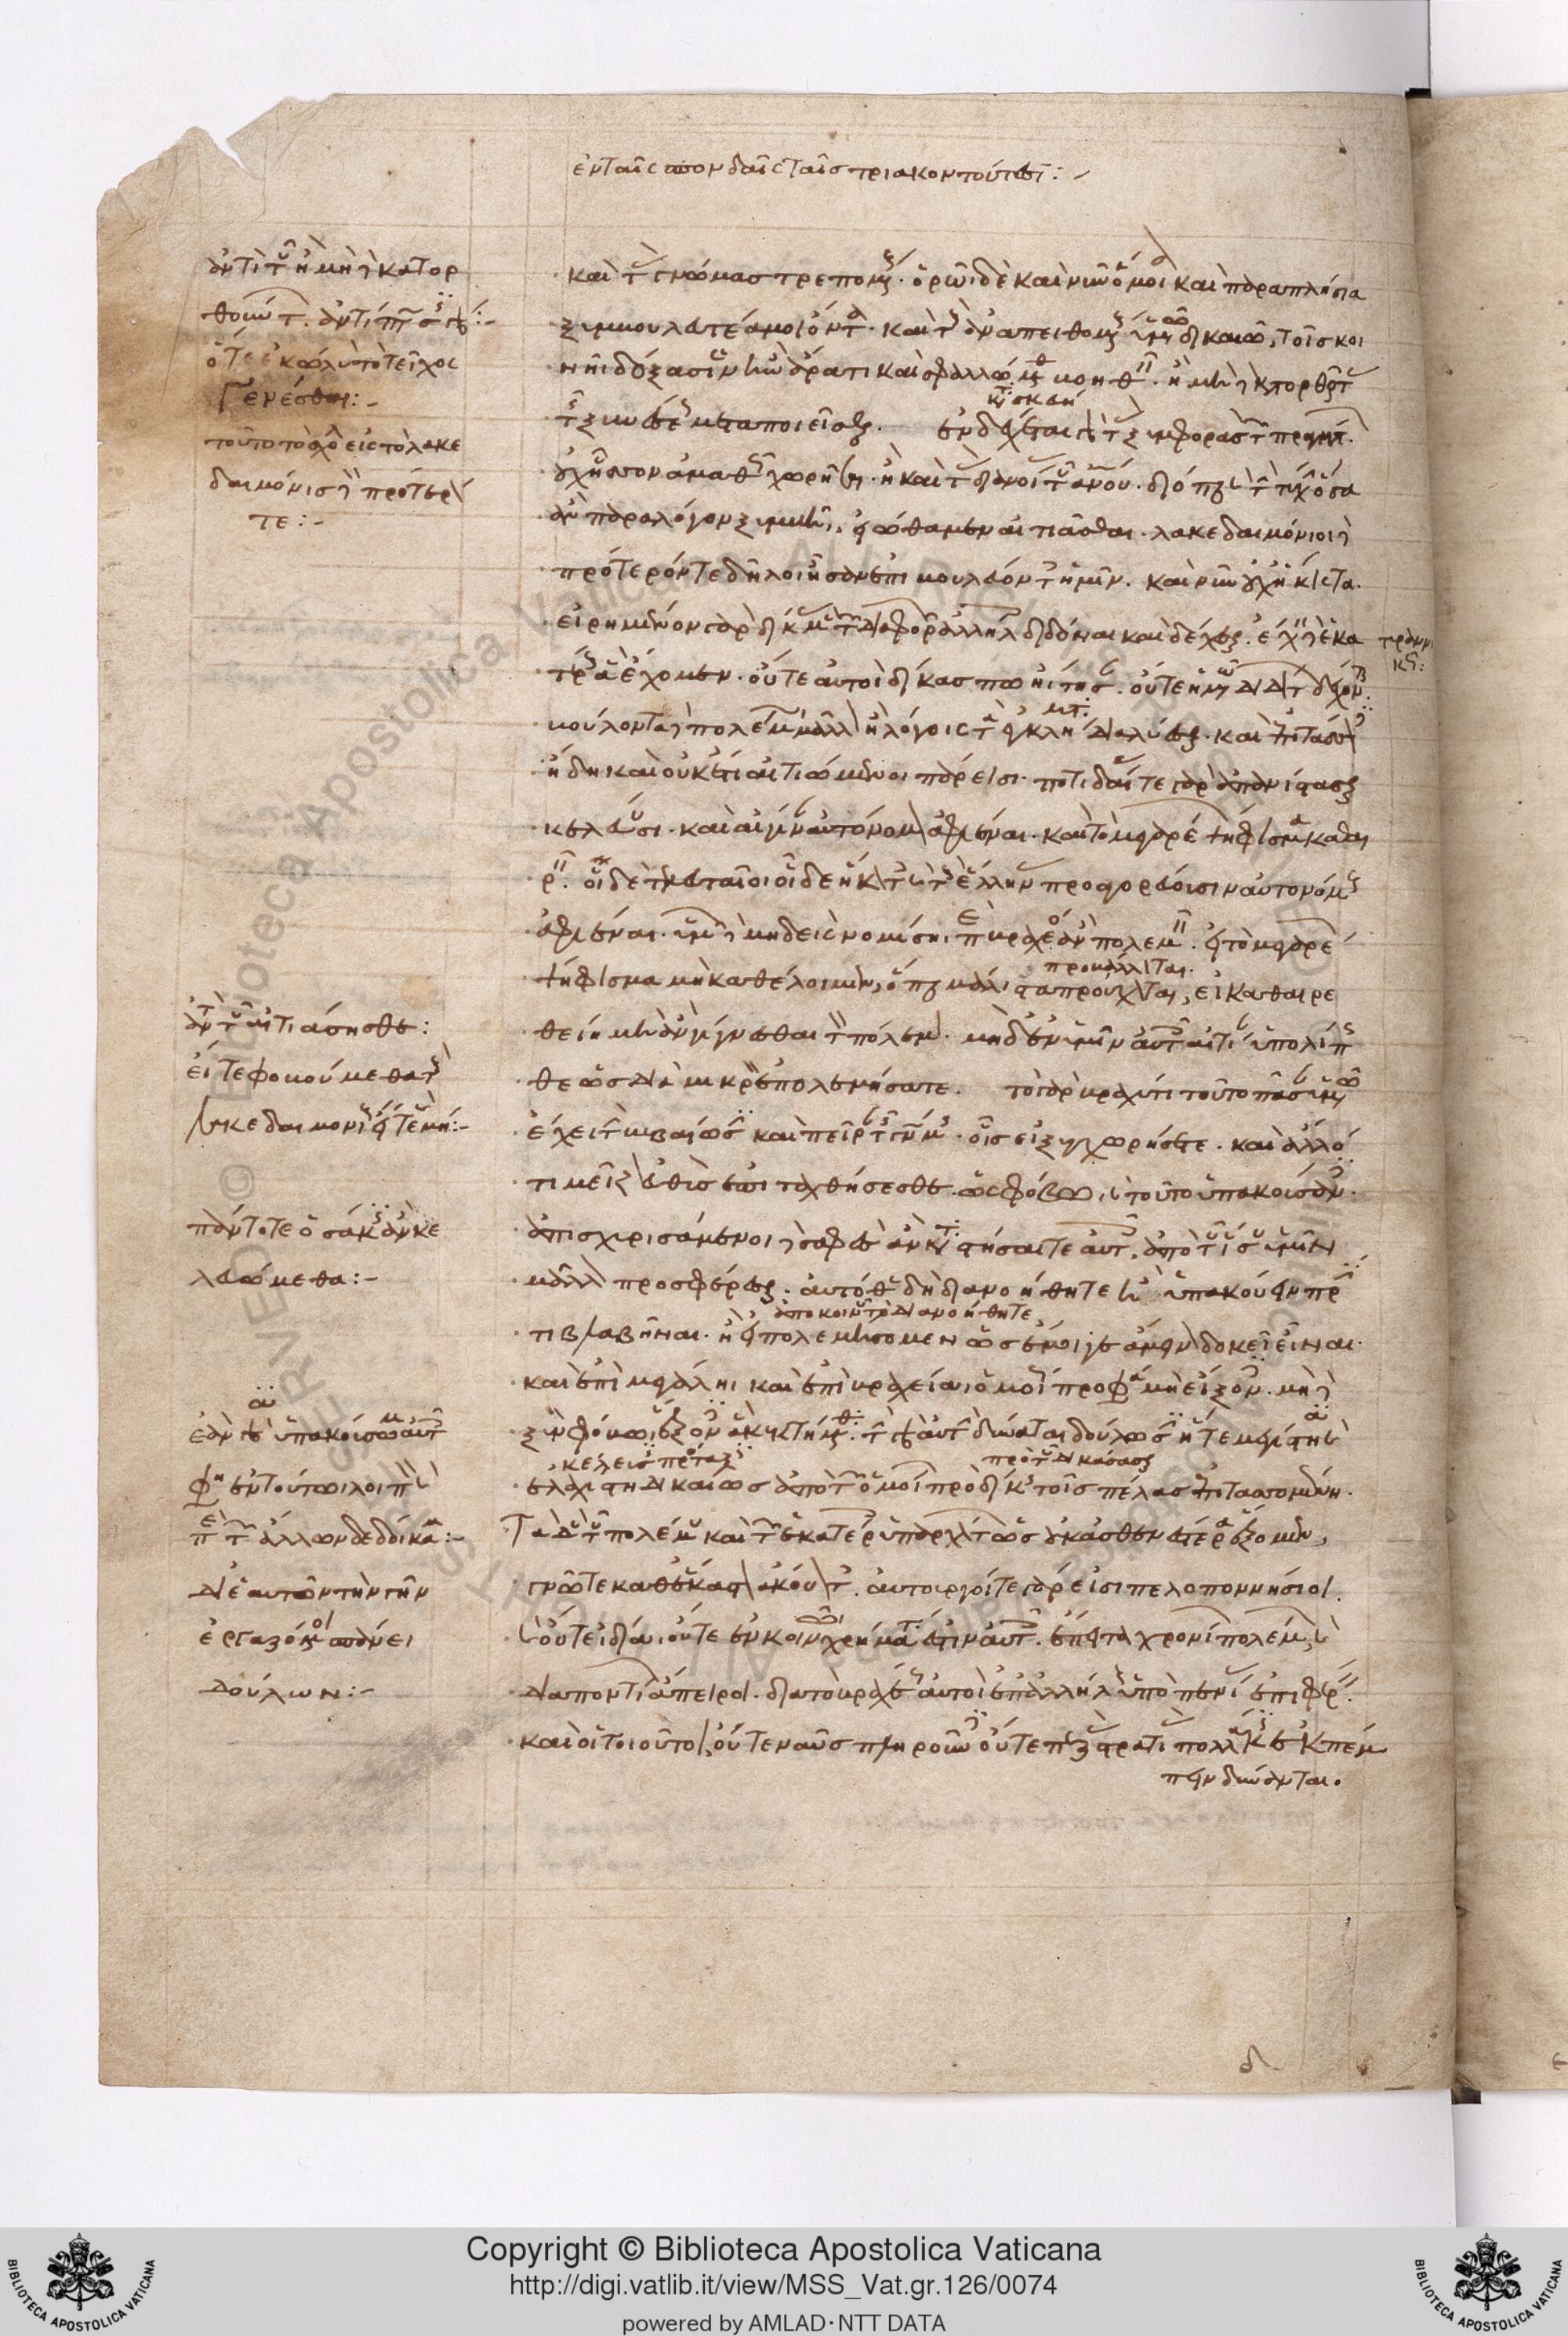 ἐν ταῖς σπονδαῖς ταῖς τριακοντούτεσι:-
ἀντὶ τοῦ εἰ μὴ δὲ κατορ
θοῦντας
ὅτε ἐκωλύετο τεῖχος
γενέσθαι:-
τοῦτο τὸ σχῆμα εἰς τὸ λακε
δαιμόνιοι δὲ πρότερόν
τε:-
καὶ τὰς γνώμας τρεπομένους. ὁρῶ δὲ καὶ νῦν ὅμοια καὶ παραπλήσια
ξυμβουλευτέα μοι ὄντα. καὶ τοὺς ἀναπειθομένους ὑμῶν δικαιῶ, τοῖς κοι
νῆι δόξασιν ἢν ἄρα τι καὶ σφαλλώμεθα βοηθεῖν. ἢ μηδὲ κατορθοῦντας
τῆς ξυνέσεως μεταποιεῖσθαι. ἐνδέχεται γὰρ τὰς ξυμφορὰς τῶν πραγμάτων
οὐχ ἧσσον ἀμαθῶς χωρῆσαι. ἢ καὶ τὰς διανοίας τοῦ ἀνου. διόπερ καὶ τὴν τύχην ὅσα
ἂν παρὰ λόγον ξυμβῆι, εἰώθαμεν αἰτιᾶσθαι. λακεδαιμόνιοι δὲ
πρότερόν τε δῆλοι ἦσαν ἐπιβουλεύοντες ἡμῖν. καὶ νῦν οὐχ ἥκιστα.
εἰρημένον γὰρ δίκας μὲν τῶν διαφορῶν ἀλλήλοις διδόναι καὶ δέχεσθαι. ἔχειν δὲ ἑκα
τέρους ἃ ἔχομεν. οὔτε αὐτοὶ δίκας πω ἤιτησαν. οὔτε ἡμῶν διδόντων δέχονται.
βούλονται δὲ πολέμωι μᾶλλον ἢ λόγοις τὰ ἐγκλήματα διαλύεσθαι. καὶ ἐπιτάσσοντες
ἤδη καὶ οὐκέτι αἰτιώμενοι πάρεισι. ποτιδαίας τε γὰρ ἀπανίστασθαι
κελεύουσι. καὶ αἴγιναν αὐτόνομον ἀφιέναι. καὶ τὸ μεγαρέων ψήφισμα καθαι
ρεῖν. οἱ δὲ τελευταῖοι οἵδε ἥκοντες καὶ τοὺς ἕλληνας προαγορεύουσιν αὐτονόμους
ἀφιέναι. ὑμῶν δὲ μηδεὶς νομίσηι περὶ βραχέος ἂν πολεμεῖν. εἰ τὸ μεγαρέων
ψήφισμα μὴ καθέλοιμεν, ὅπερ μάλιστα προύχονται, εἰ καθαιρε
θείη μὴ ἂν γίγνεσθαι τὸν πόλεμον. μηδ' ἐν ὑμῖν αὐτοῖς αἰτίαν ὑπολίπησ
θε ὡς διὰ μικρὸν ἐπολεμήσατε. τὸ γὰρ βραχύ τι τοῦτο πᾶσαν ὑμῶν
ἔχει τὴν βεβαίωσιν καὶ πεῖραν τῆς γνώμης. οἷς εἰ ξυγχωρήσετε. καὶ ἄλλο
τι μεῖζον εὐθὺς ἐπιταχθήσεσθε. ὡς φόβωι, καὶ τοῦτο ὑπακούσαντες.
ἀπισχυρισάμενοι δὲ σαφὲς ἂν καταστήσαιτε αὐτοῖς. ἀπὸ τοῦ ἴσου ὑμῖν
μᾶλλον προσφέρεσθαι. αὐτόθεν δὴ διανοήθητε ἢ ὑπακούειν πρίν
τι βλαβῆναι. ἢ εἰ πολεμήσομεν ὥσπερ ἔμοιγε ἄμεινον δοκεῖ εἶναι.
καὶ ἐπὶ μεγάληι καὶ ἐπὶ βραχείαι ὁμοίως προφάσει μὴ εἴξοντες. μηδὲ
ξὺν φόβωι ἕξοντες ἃ κεκτήμεθα. τὴν γὰρ αὐτὴν δύναται δούλωσιν ἥ τε μεγίστη καὶ
ἐλαχίστη δικαίωσις ἀπὸ τῶν ὁμοίων πρὸ δίκης τοῖς πέλας ἐπιτασσομένη.
Τὰ δὲ τοῦ πολέμου καὶ τῶν ἑκατέροις ὑπαρχόντων ὡς οὐκ ἀσθενέστερα ἕξομεν,
γνῶτε καθ' ἕκαστον ἀκούοντες. αὐτουργοί τε γάρ εἰσι πελοποννήσιοι.
καὶ οὔτε ἰδίαι οὔτε ἐν κοινῶι χρήματά ἐστιν αὐτοῖς. ἔπειτα χρονίων πολέμων, καὶ
διαποντίων ἄπειροι. διὰ τὸ βραχέως αὐτοὶ ἐπ' ἀλλήλους ὑπὸ πενίας ἐπιφέρειν.
καὶ οἱ τοιοῦτοι, οὔτε ναῦς πληροῦντες οὔτε πεζὰς στρατιὰς πολλάκις ἐκπέμ
πειν δύνανται.
ἀντὶ τοῦ αἰτιάσησθε:
πάντοτε ὁσάκις ἂν κε
λευώμεθα:-
ἀπὸ κοινοῦ τὸ διανοήθητε
δι' ἑαυτῶν τὴν γῆν
ἐργαζόμενοι ἄνευ
δούλων:-
δ
Copyright © Biblioteca Apostolica Vaticana
http://digi.vatlib.it/view/MSS_Vat.gr.126/0074
powered by AMLAD·NTT DATA
BIBLIOTECA APOSTOLICA VATICANA
BIBLIOTECA APOSTOLICA VATICANA